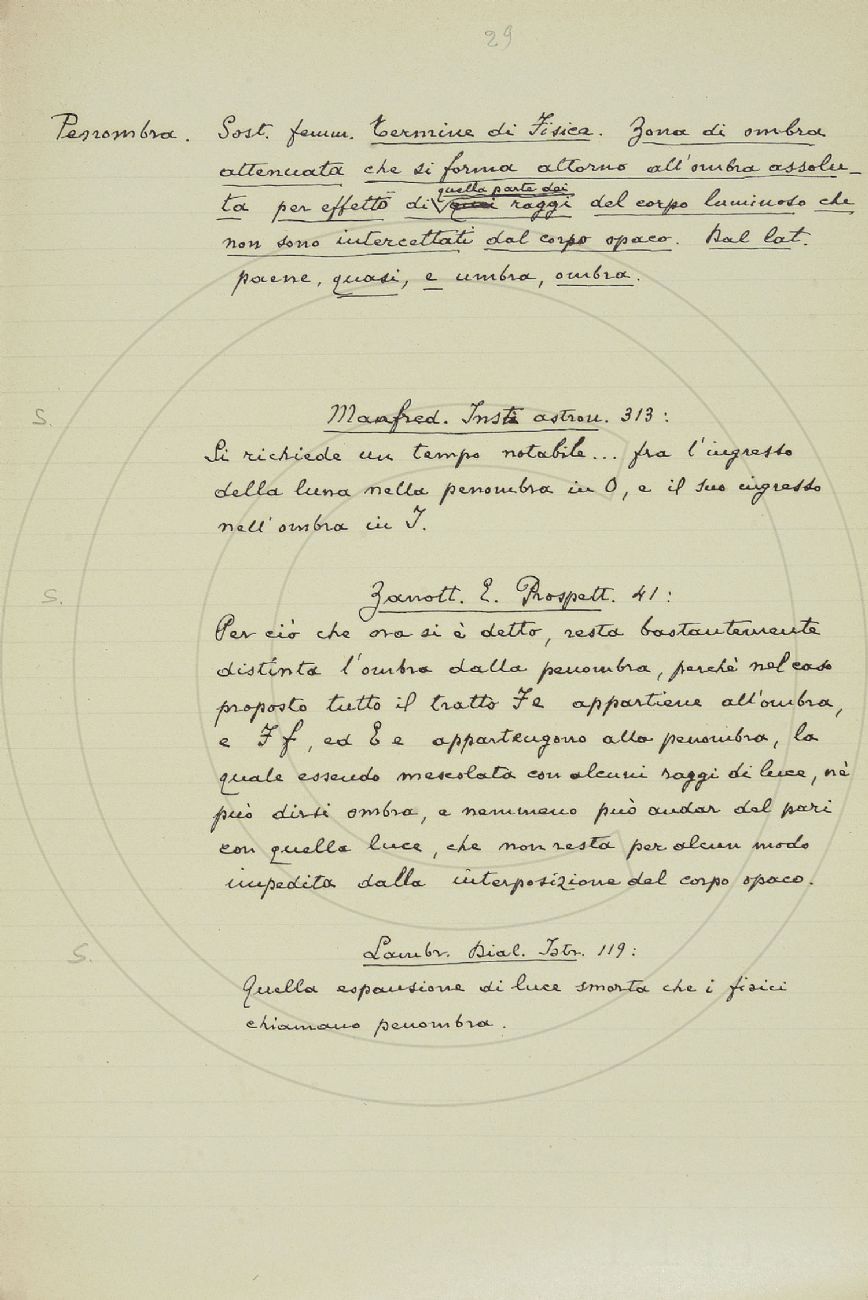 29
Penombra. Sost. femm. Termine di Fisica. Zona di ombra
attenuata che si forma attorno all'ombra assolu-
quella parte dei
ta per effetto di raggi del corpo luminoso che
non sono intercettati dal corpo opaco. Dal lat.
paene, quasi, e umbra, ombra.
S. Manfred. Inst. astron. 313:
Si richiede un tempo notabile... fra l'ingresso
della luna nella penombra in O, e il suo ingresso
nell'ombra in I.
S. Zanott. E. Prospett. 41:
Per ciò che ora si è detto, resta bastantemente
distinta l'ombra dalla penombra, perchè nel caso
proposto tutto il tratto Fe appartiene all'ombra,
e Ff, ed E e appartengono alla penombra, la
quale essendo mescolata con alcuni raggi di luce, nè
può dirsi ombra, e nemmeno può andar del pari
con quella luce, che non resta per alcun modo
impedita dalla interposizione del corpo opaco.
S. Lambr. Dial. Istr. 119:
Quella espansione di luce smorta che i fisici
chiamano penombra.